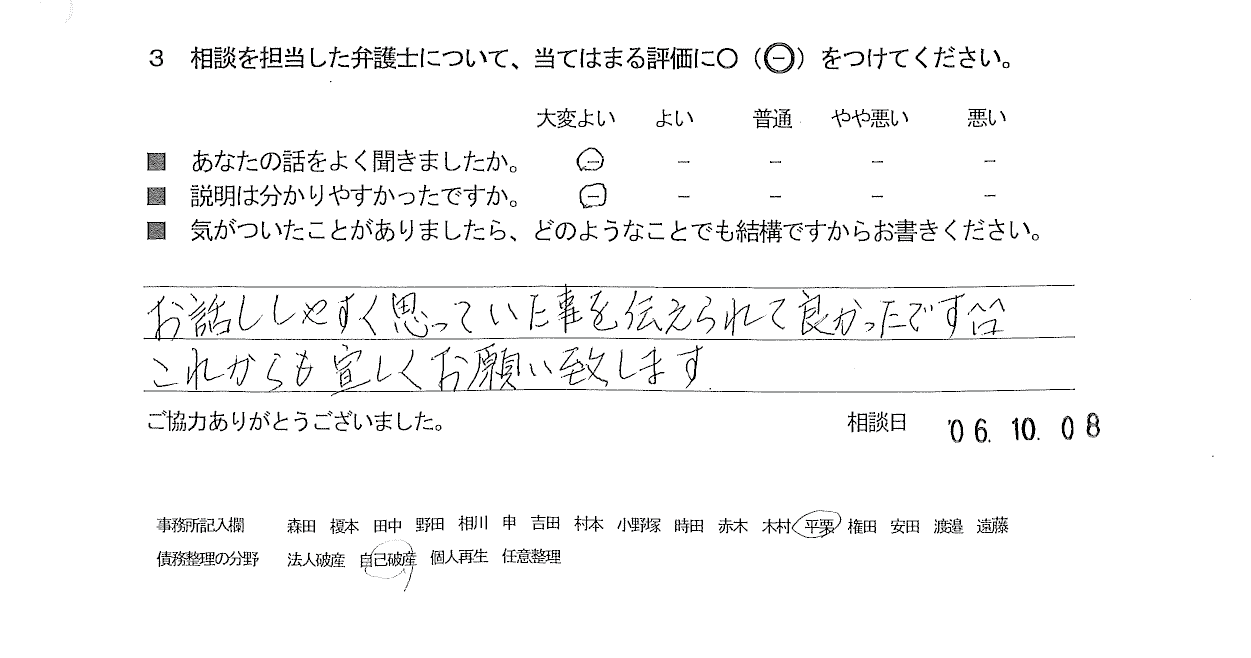 3 相談を担当した弁護士について、当てはまる評価に○（㊀）をつけてください。
大変よい よい 普通 やや悪い 悪い
■ あなたの話をよく聞きましたか。 － － － － －
■ 説明は分かりやすかったですか。 － － － － －
■ 気がついたことがありましたら、どのようなことでも結構ですからお書きください。
お話ししやすく思っていた事を伝えられて良かったです^^
これからも宜しくお願い致します
ご協力ありがとうございました。 相談日 '06.10.08
事務所記入欄 森田 榎本 田中 野田 相川 申 吉田 村本 小野塚 時田 赤木 木村 平栗 権田 安田 渡邉 遠藤
債務整理の分野 法人破産 自己破産 個人再生 任意整理